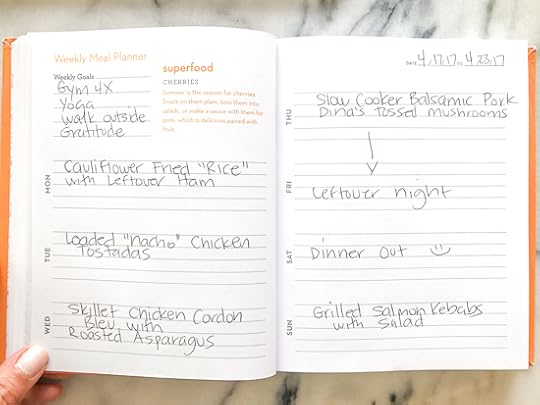 Weekly Meal Planner
Weekly Goals
Gym 4X
Yoga
Walk outside
Gratitude
superfood
CHERRIES
Summer is the season for cherries.
Snack on them plain, toss them into
salads, or make a sauce with them for
pork, which is delicious paired with
fruit.
MON
Cauliflower Fried "Rice"
with Leftover Ham
TUE
Loaded "nacho" Chicken
Tostadas
WED
Skillet Chicken Cordon
Bleu with
Roasted Asparagus
DATE 4.17.17 TO 4.23.17
THU
Slow Cooker Balsamic Pork
Dina's Tossed Mushrooms
FRI
Leftover night
SAT
Dinner Out
SUN
Grilled Salmon Kebabs
with Salad